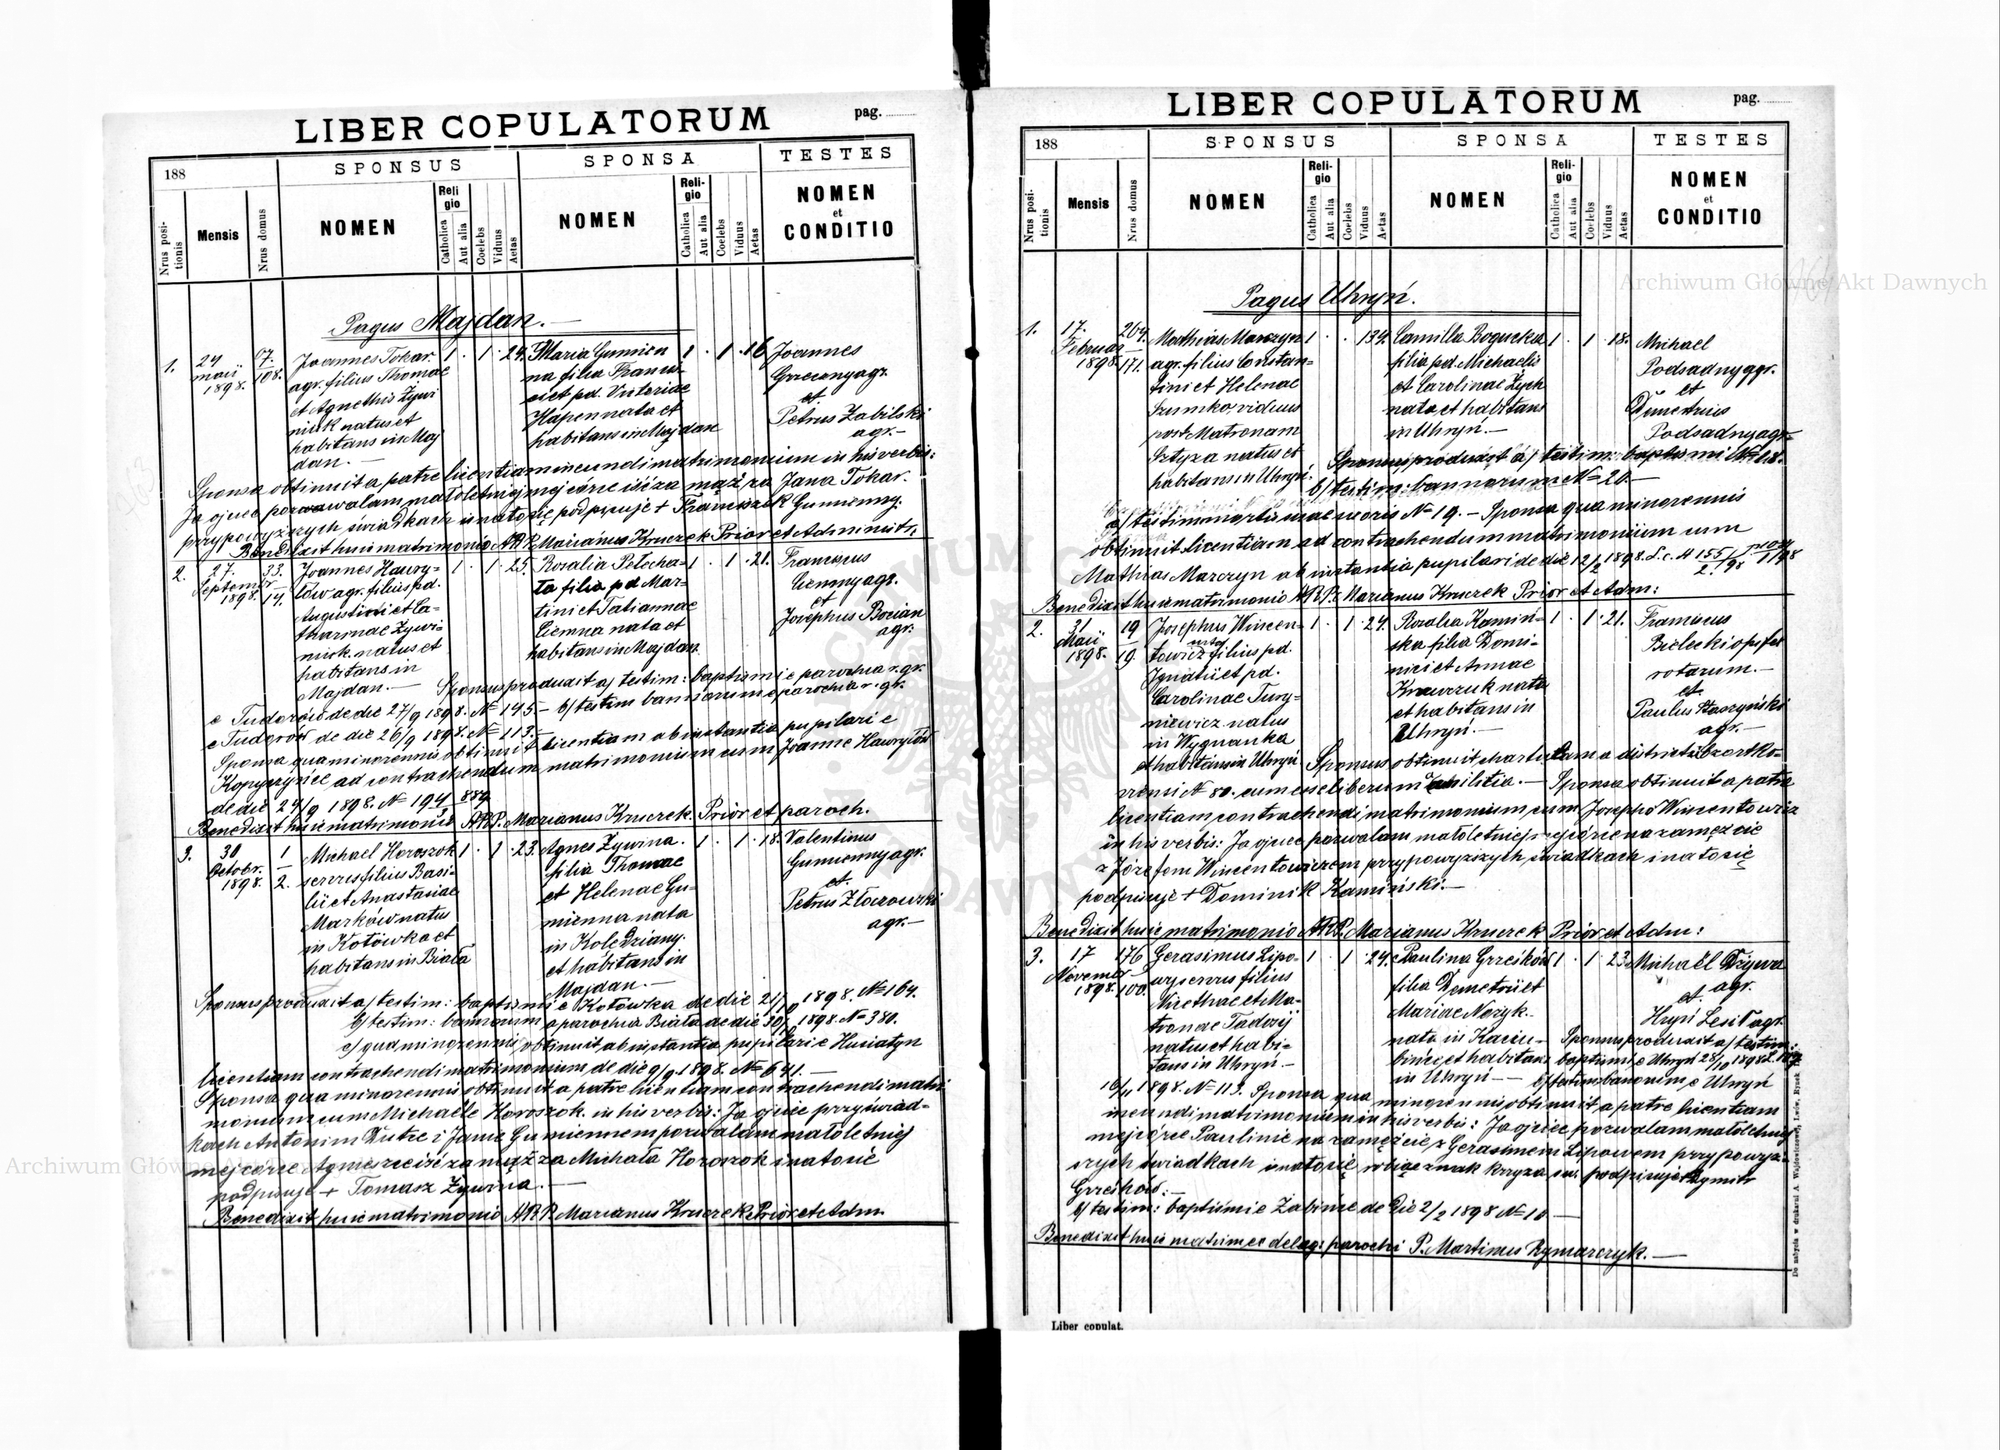 LIBER COPULATORUM
pag.
188
SPONSUS
SPONSA
TESTES
Nrus positionis
Mensis
Nrus domus
NOMEN
Religio
Catholica
Aut alia
Coelebs
Viduus
Aetas
NOMEN
Religio
Catholica
Aut alia
Coelebs
Viduus
Aetas
NOMEN
et
CONDITIO
Pagus Majdan.
1.
24
maii
1898.
108.
Joannes Tokar
agr. filius Thomae
et Agnethis Żywi
niuk natus et
habitans in Maj
dan.
1 · 1 · 24.
Maria Gumien
na filia Francis
ci et pd. Victoriae
Hapen nata et
habitans in Majdan
1 · 1 · 16
Joannes
Grzeczny agr.
et
Petrus Zabilski
agr.
Sponsa obtinuit a patre licentiam ineundi matrimonium in his verbis:
Ja ojciec pozwalam małoletniej mej córce iść za mąż za Jana Tokar.
przy powyższych świadkach i na to się podpisuję + Franciszek Gumienny.
Benedixit huic matrimonio A.R.P. Marianus Kruczek Prior et Administr.
2.
27.
Septembr
1898.
33.
14.
Joannes Hawry-
łów agr. filius pd.
Augustini et Ca-
tharinae Żywi-
niuk natus et
habitans in
Majdan.
1 · 1 · 25.
Rosalia Petecha-
ta filia pd Mar-
tini et Tatiannae
Ciemna nata et
habitans in Majdan
1 · 1 · 21.
Franciscus
Ciemny agr.
et
Josephus Bocian
agr.
Sponsus produxit a/ testim: baptismi e parochia r. gr.
e Tudorów de die 27/9 1898. № 145 – b/ testim bannorum e parochia r. gr.
e Tudorów de die 26/9 1898. № 113.
Sponsa qua minorennis obtinuit licentiam ab instantia pupilari e
Kopyczyńce ad contrahendum matrimonium cum Joanne Hawryłów
de die 24/9 1898. № 194/889
Benedixit huic matrimonio A.R.P. Marianus Kruczek Prior et paroch.
3.
30
Octobr.
1898.
1
2.
Michael Horoszok
servus filius Basi-
lii et Anastasiae
Marków natus
in Kotówka et
habitans in Biała
1 · 1 · 23.
Agnes Żywina
filia Thomae
et Helenae Gu-
mienna nata
in Kolędziany
et habitans in
Majdan.
1 · 1 · 18.
Valentinus
Gumienny agr.
et
Petrus Złoczowski
agr.
Sponsus produxit a/ testim: baptismi e Kotówka de die 21/10 1898. № 164.
b/ testim: bannorum a parochia Biała de die 30/10 1898. № 380.
c/ qua minorennis obtinuit ab instantia pupilari e Husiatyn
licentiam contrahendi matrimonium de die 9/9 1898. № 641.
Sponsa qua minorennis obtinuit a patre licentiam contrahendi matri
monium cum Michaele Horoszok. in his verbis: Ja ojciec przy świad-
kach Antonim Dutce i Janie Gumiennem pozwalam małoletniej
mej córce Agnieszce iść za mąż za Michała Horoszok i na to się
podpisuję + Tomasz Żywina.
Benedixit huic matrimonio A.R.P. Marianus Kruczek Prior et Adm.
LIBER COPULATORUM
pag.
188
SPONSUS
SPONSA
TESTES
Nrus positionis
Mensis
Nrus domus
NOMEN
Religio
Catholica
Aut alia
Coelebs
Viduus
Aetas
NOMEN
Religio
Catholica
Aut alia
Coelebs
Viduus
Aetas
NOMEN
et
CONDITIO
Pagus Uhryń.
1.
17.
Februar
1898.
204.
171.
Mathias Marczyn
agr. filius Constan-
tini et Helenae
Szumko viduus
post Matronam
Sztyza natus et
habitans in Uhryń.
1 · · 1 34.
Camilla Bogucka
filia pd. Michaelis
et Carolinae Zych
nata et habitans
in Uhryń.
1 · 1 · 18.
Michael
Podsadny agr.
et
Demetrius
Podsadny agr.
Sponsus produxit a/ testim: baptismi № 68.
b/ testim: bannorum № 20.
c/ testim mortis suae uxoris № 19. – Sponsa qua minorennis
obtinuit licentiam ad contrahendum matrimonium cum
Mathias Marczyn ab instantia pupilari de die 12/2 1898.
Benedixit huic matrimonio A.R.P. Marianus Kruczek Prior et Adm:
2.
31
Maii
1898.
19
19.
Josephus Wincen-
towicz filius pd.
Ignatii et pd.
Carolinae Tury-
niewicz natus
in Wygnanka
et habitans in Uhryń
1 · 1 · 24.
Rosalia Kamiń-
ska filia Domi-
nici et Annae
Krawczuk nata
et habitans in
Uhryń.
1 · 1 · 21.
Franciscus
Bielecki opifex
rotarum.
et
Paulus Staszyński
agr.
Sponsus obtinuit chartulam a districtu Czortko-
viensi № 80. eum esse liberum a militia. – Sponsa obtinuit a patre
licentiam contrahendi matrimonium cum Josepho Wincentowicz
in his verbis: Ja ojciec pozwalam małoletniej mej córce na zamęźcie
z Józefem Wincentowiczem przy powyższych świadkach i na to się
podpisuję + Dominik Kamiński.
Benedixit huic matrimonio A.R.P. Marianus Kruczek Prior et Adm:
3.
17
Novembr
1898.
176
100.
Gerasimus Lipo-
wy servus filius
Nicethae et Ma-
tronae Tadzij
natus et habi-
tans in Uhryń.
1 · 1 · 24.
Paulina Grześków
filia Demetrii et
Mariae Nozyk.
nata in Kaciu-
bince et habitans
in Uhryń
1 · 1 · 23.
Michael Dżywa
agr.
et
Hryń Lesik agr.
Sponsus produxit a/ testim:
baptismi e Uhryń 28/10 1898
b/ testim bannorum e Uhryń
10/11 1898. № 113. Sponsa qua minorennis obtinuit a patre licentiam
ineundi matrimonium in his verbis: Ja ojciec pozwalam małoletniej
mej córce Paulinie na zamęźcie z Gerasimem Lipowem przy powyż-
szych świadkach i na to się robiąc znak krzyża św. podpisuję + Dymitr
Grześków.
b/ testim: baptismi e Zabińce de die 2/2 1898 № 10
Benedixit huic matrim. ex deleg: parochi P. Martinus Rymarczyk.
Liber copulat.
Archiwum Główne Akt Dawnych
Archiwum Główne